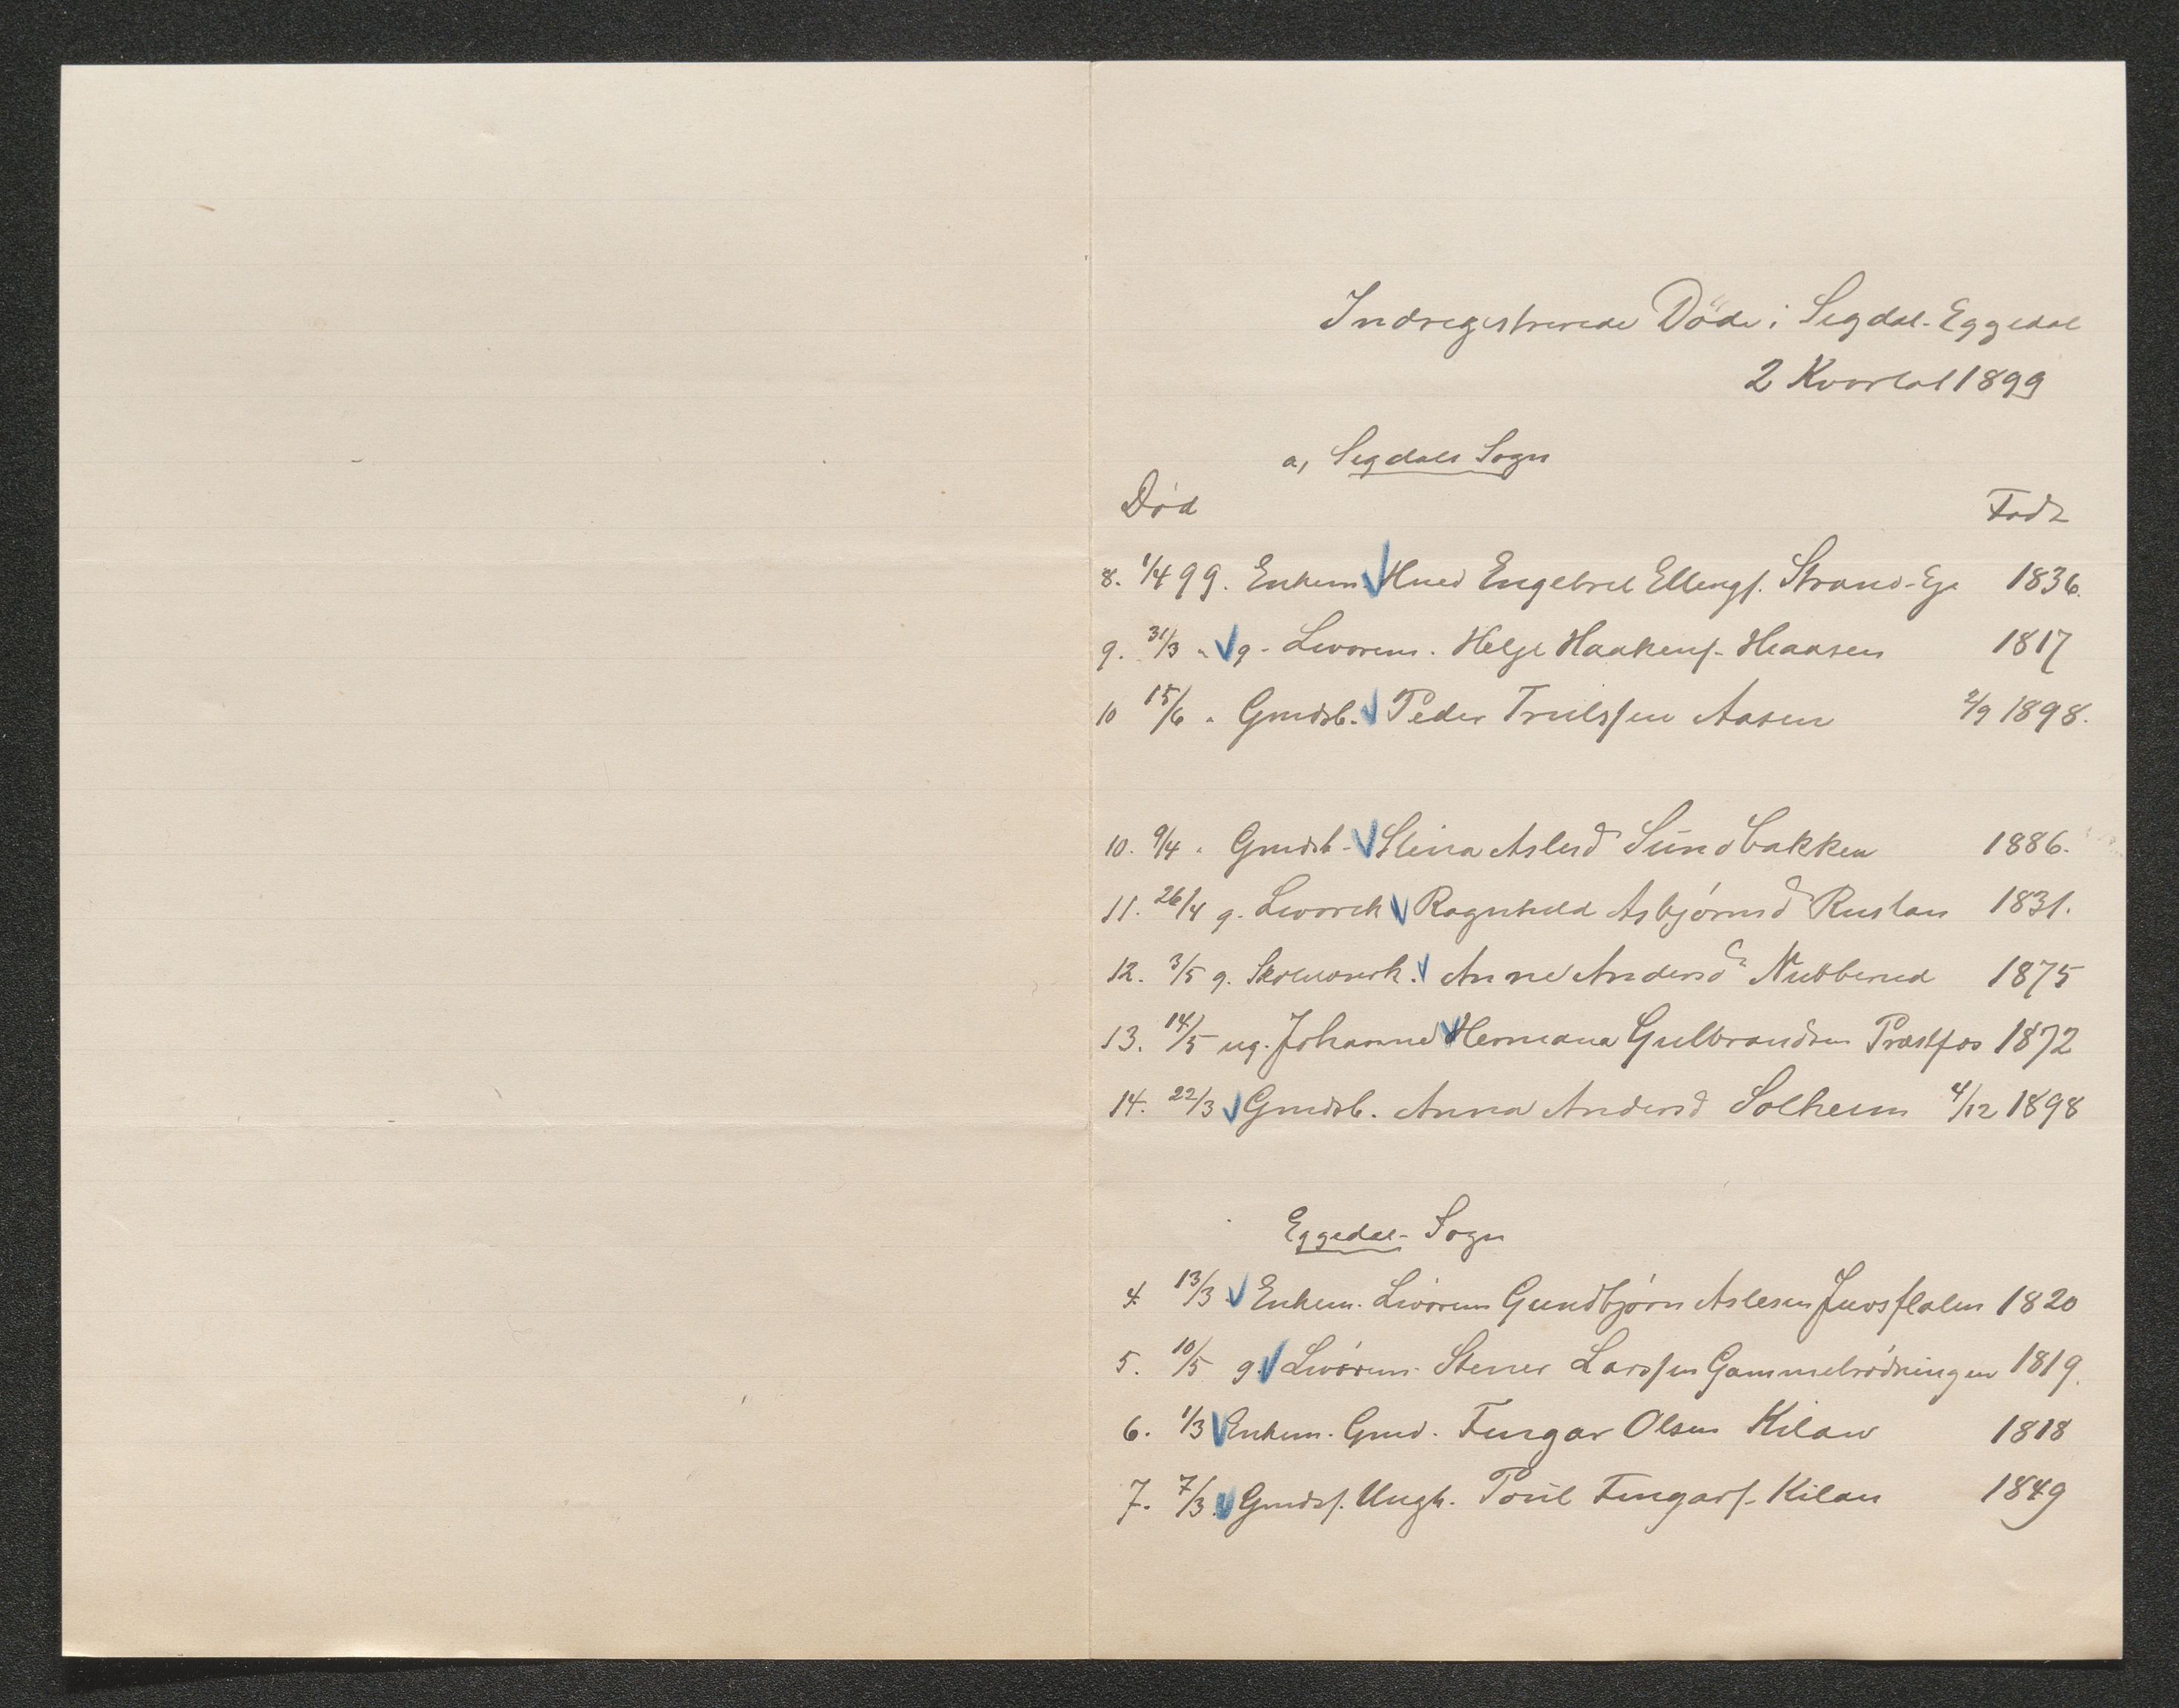 Indregistrerede Döde i Sigdal-Eggedal
2 Kvartal 1899
a, Sigdals Sogn
Död Född
8. 1/4 99. Enkem. Hmd Engebret Ellings. Strand-Eje 1836.
9. 31/3 " g. Livörem. Helge Haakens. Haasen 1817
10 15/6 " Gmdsb. Peder Trulssen Aasen 2/9 1898.
10. 9/4 " Gmdsb. Stina Aslesd Sundbakken 1886.
11. 26/4 g. Livörek Ragnhild Asbjörnsd Rustan 1831.
12. 3/5 g. Anne Andersd Nubberud 1875
13. 14/5 ug. Johanne Hermana Gulbrandsen Præstfos 1872
14. 22/3 Gmdsb. Anna Andersd Solheim 4/12 1898
Eggedal- Sogn
4. 13/3 Enkem. Livörem Gundbjörn Aslesen Juvsflaten 1820
5. 10/5 g. Livörem. Stener Larssen Gammelrödningen 1819.
6. 1/3 Enkem. Gmd. Fingar Olsen Kilan 1818
7. 7/3 Gmdss. Ungk. Poul Fingars. Kilan 1849